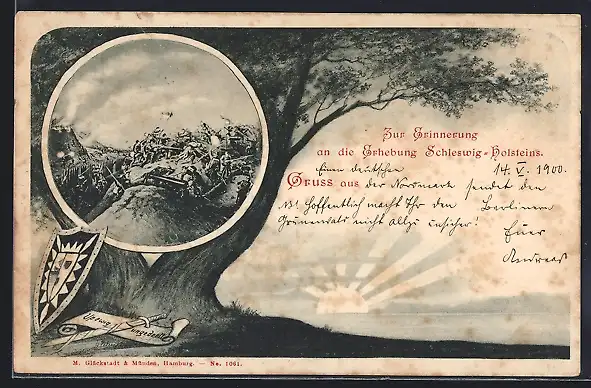 Zur Erinnerung
an die Erhebung Schleswig-Holsteins.
Einen deutschen 14. V. 1900.
Gruss aus der Normark sendet den
Hoffentlich macht Ihr den Berlinern
nicht allzu unsicher!
Euer
Andreas
Up ewig ungedeelt
M. Glückstadt & Münden, Hamburg. — No. 1061.